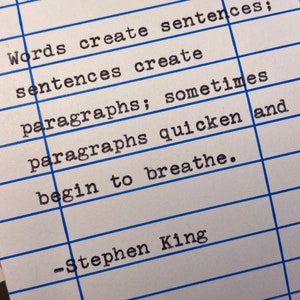 Words create sentences;
sentences create
paragraphs; sometimes
paragraphs quicken and
begin to breathe.
-Stephen King